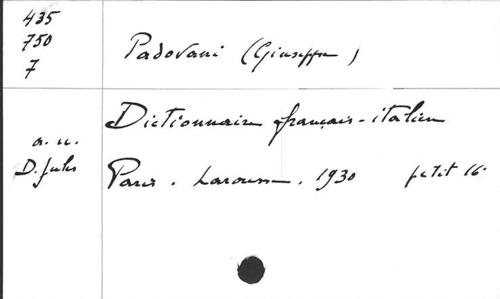 435
750
7
Padovani (Giuseppe)
Dictionnaire français-italien
a. n.
D. Jules
Paris. Larousse. 1930 petit 16°